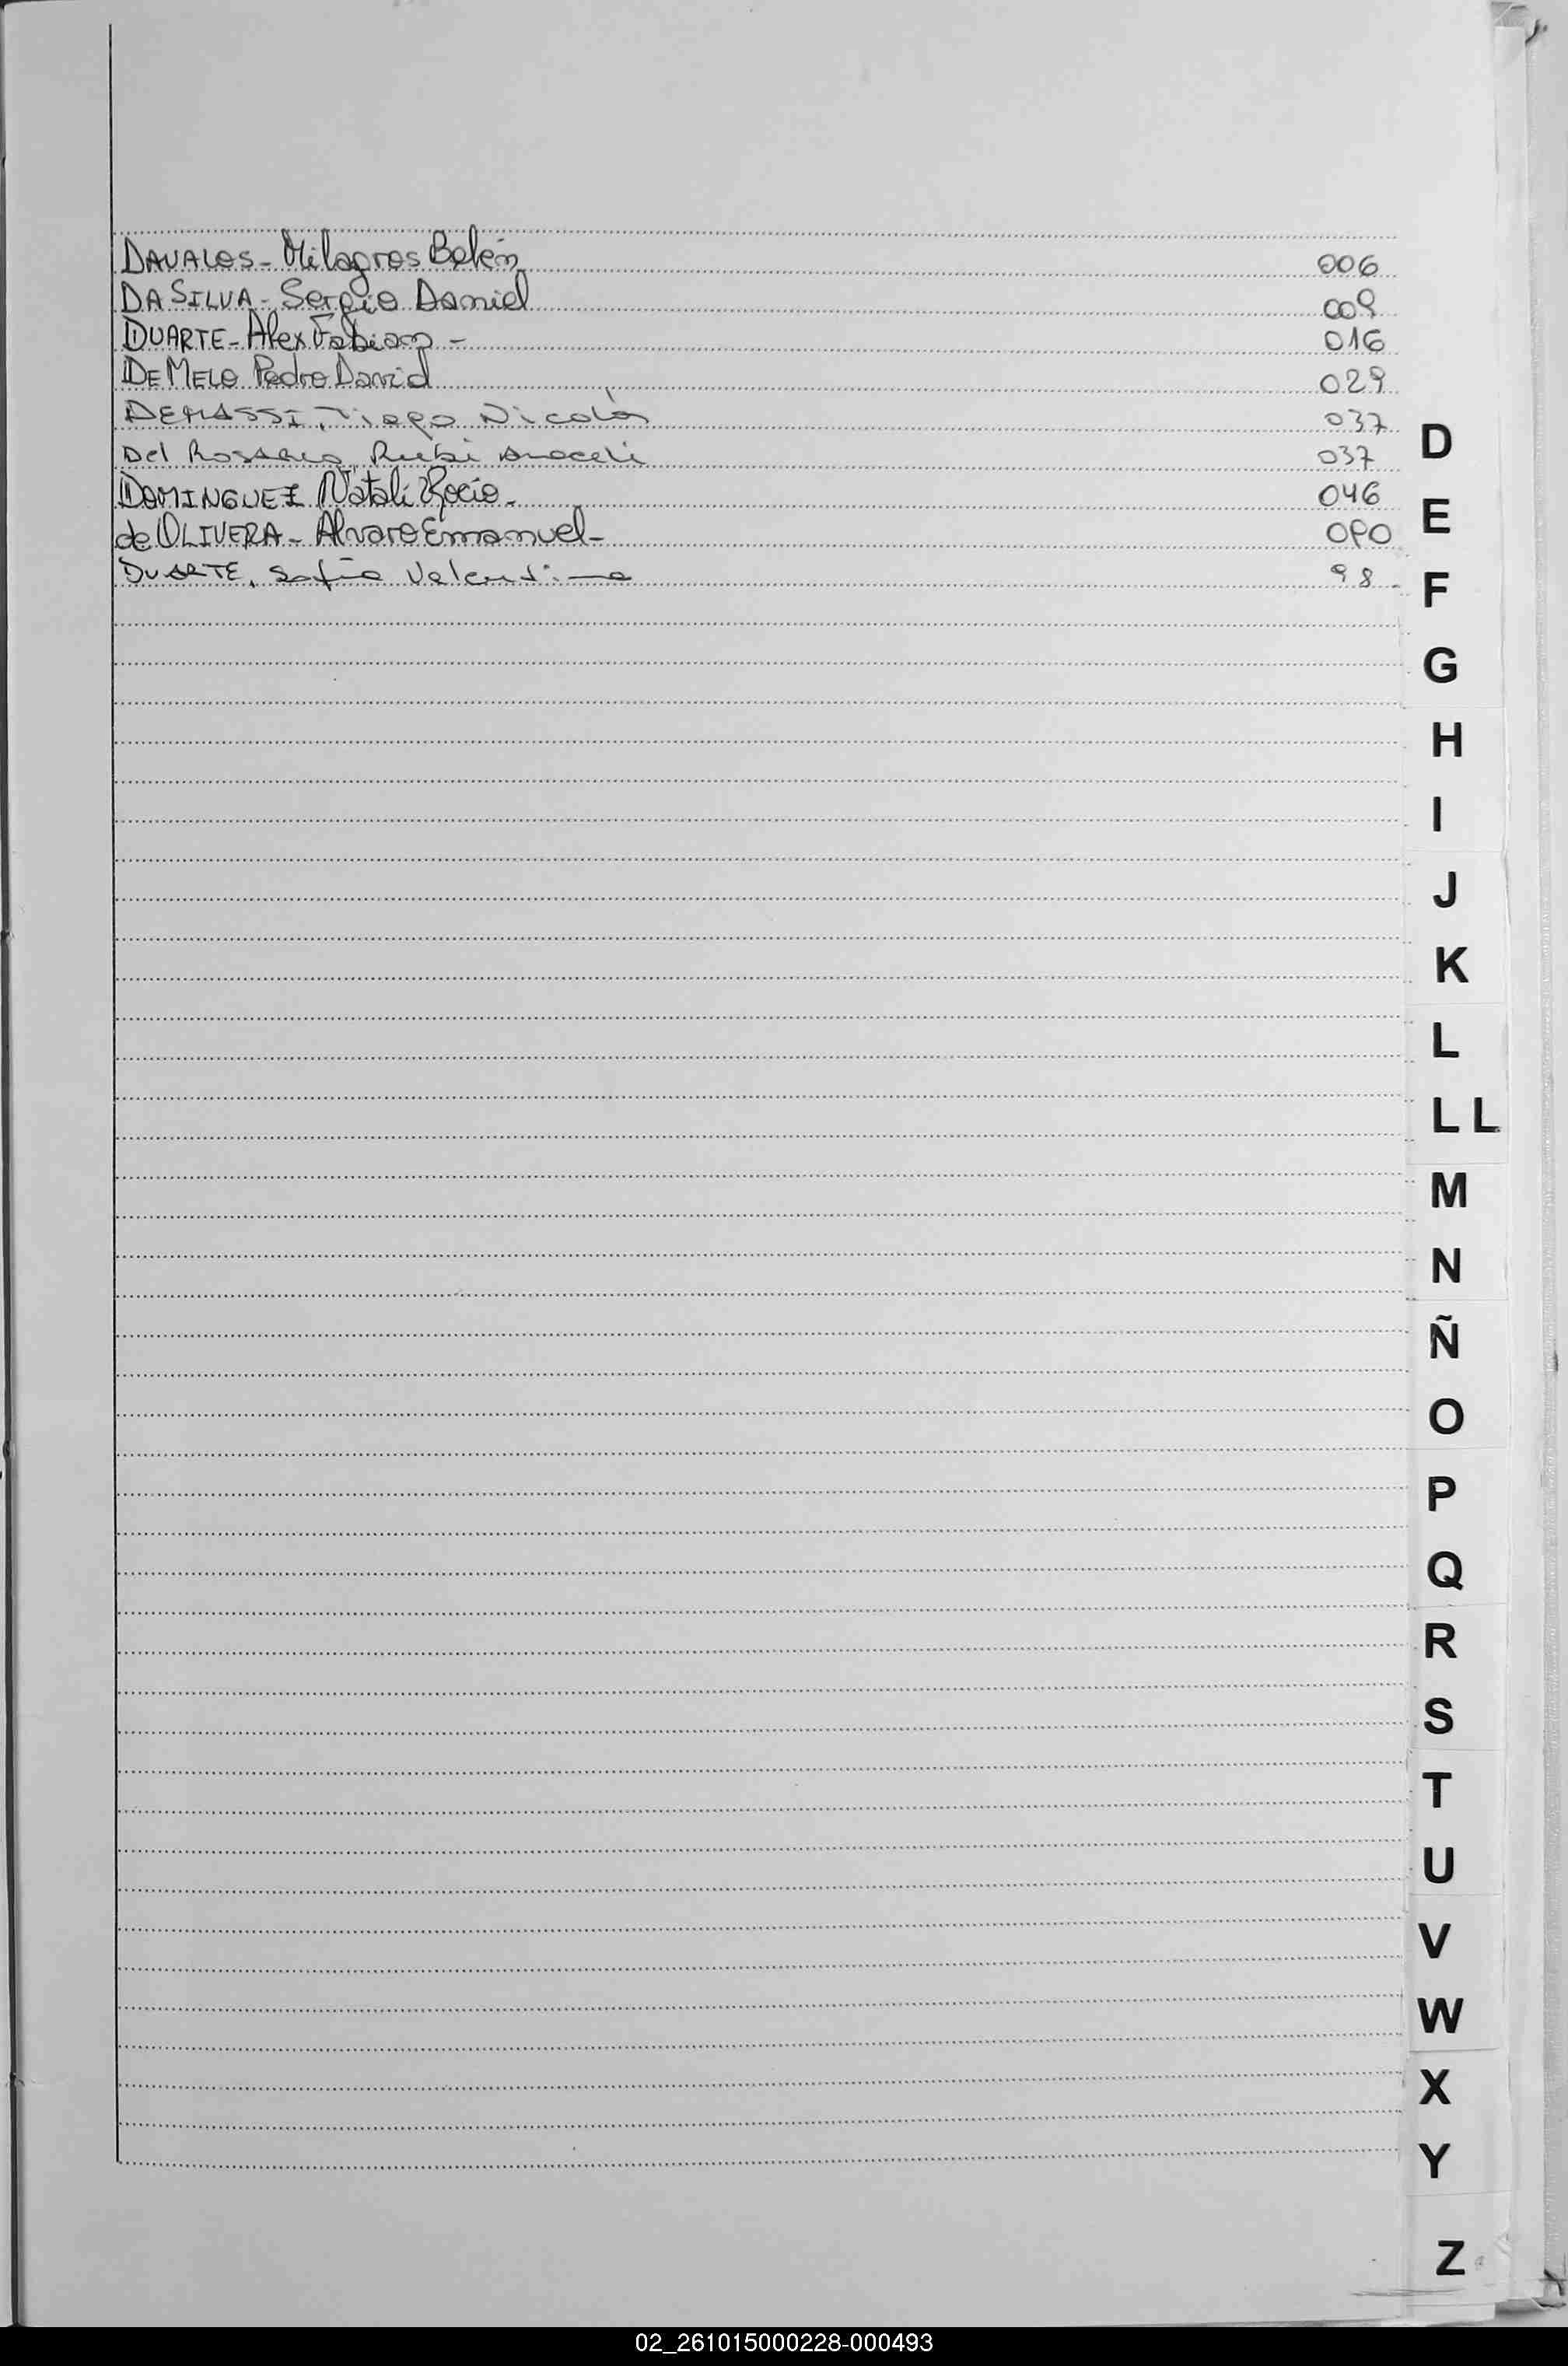 DAVALOS - Milagros Belén 006
DA SILVA - Sergio Daniel 009
DUARTE - Alex Fabian - 016
DE MELO Pedro David 029
DEMASSI, Tiago Nicolás 037
Del Rosario, Rubi Araceli 037
DOMINGUEZ Natali Rocio - 046
de OLIVERA - Alvaro Emanuel - 090
DUARTE, Sofia Valentina 98 -
D
E
F
G
H
I
J
K
L
LL
M
N
Ñ
O
P
Q
R
S
T
U
V
W
X
Y
Z
02_261015000228-000493